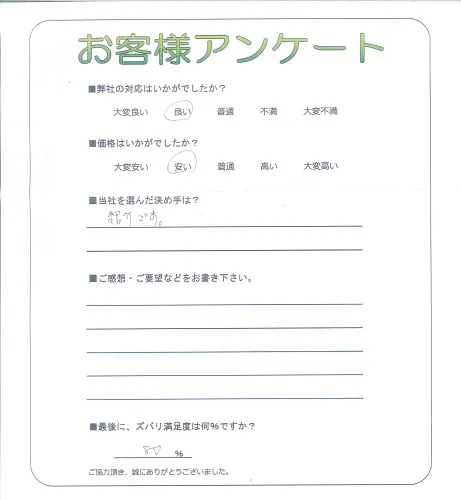 お客様アンケート
■弊社の対応はいかがでしたか？
大変良い 良い 普通 不満 大変不満
■価格はいかがでしたか？
大変安い 安い 普通 高い 大変高い
■当社を選んだ決め手は？
紹介です。
■ご感想・ご要望などをお書き下さい。
■最後に、ズバリ満足度は何%ですか？
80 %
ご協力頂き、誠にありがとうございました。